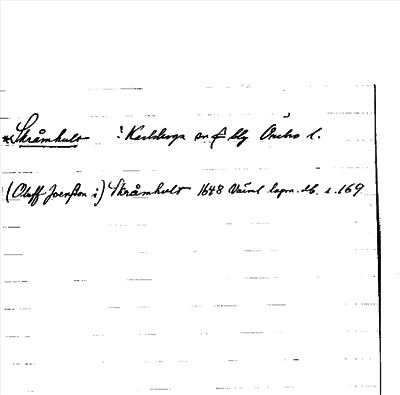 *Skråmhult : Karlskoga sn o blg Örebro l.
(Oluff Joensson i) Skråmhult 1648 Värml lagm. db. s. 169